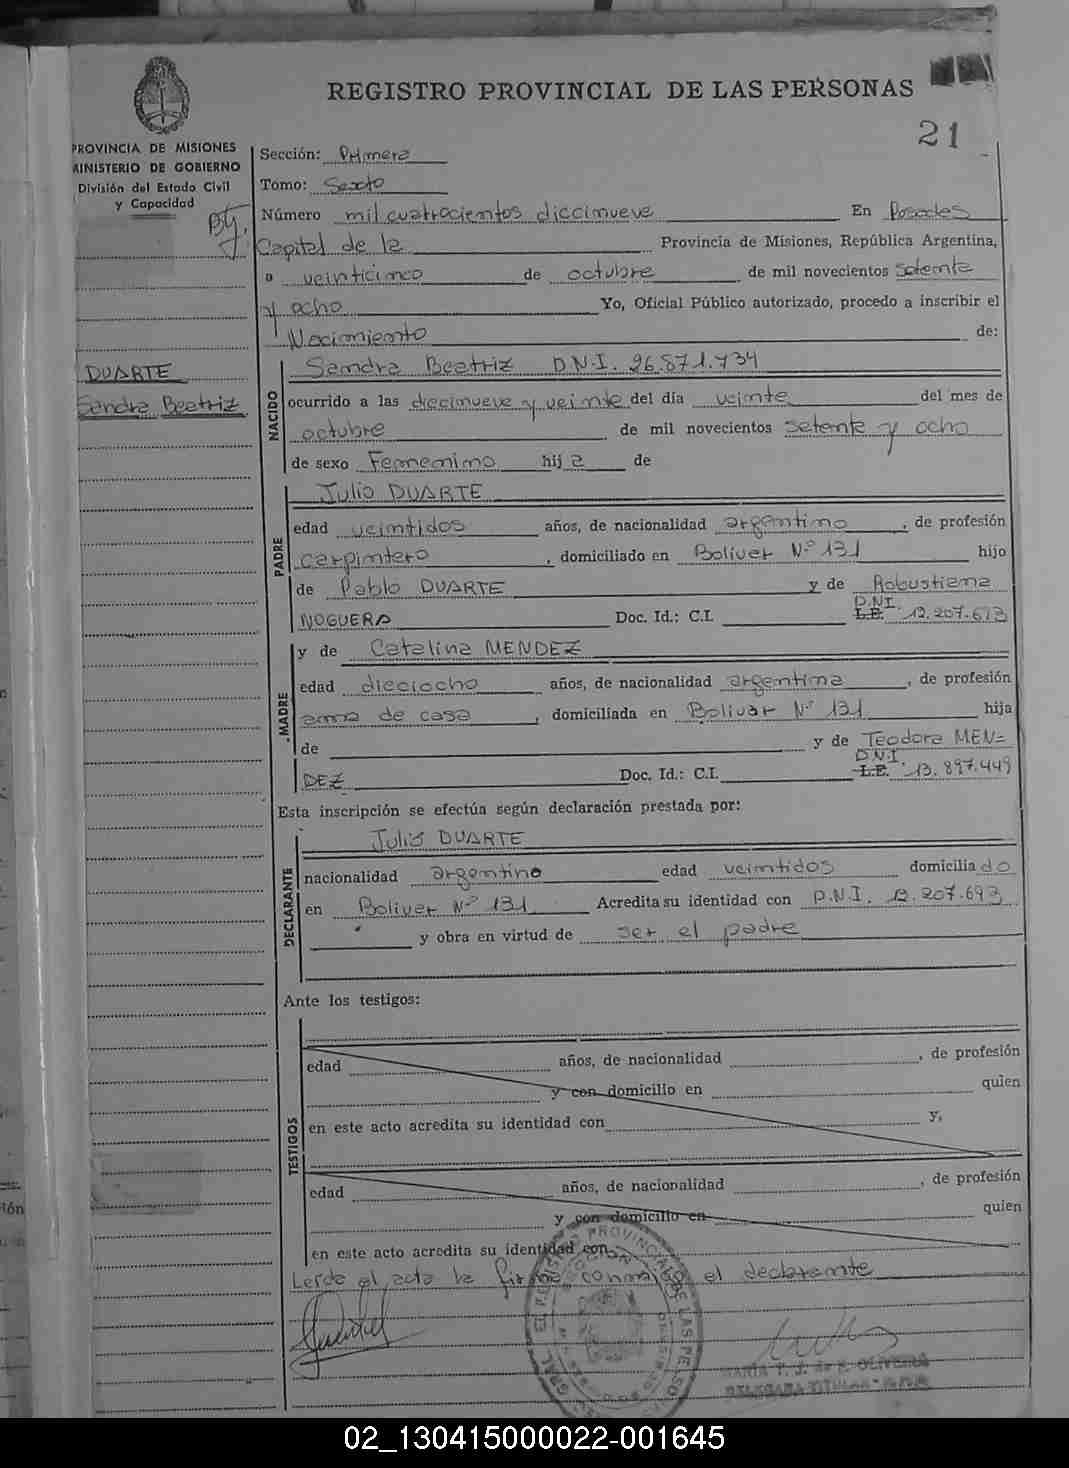 REGISTRO PROVINCIAL DE LAS PERSONAS
21
PROVINCIA DE MISIONES
MINISTERIO DE GOBIERNO
División del Estado Civil
y Capacidad
Sección: Primera
Tomo: Sexto
Número mil cuatrocientos diecinueve En Posadas
Capital de la Provincia de Misiones, República Argentina,
a veinticinco de octubre de mil novecientos setenta
y ocho Yo, Oficial Público autorizado, procedo a inscribir el
Nacimiento de:
DUARTE
Sandra Beatriz
NACIDO
Sandra Beatriz D.N.I. 26.871.734
ocurrido a las diecinueve y veinte del día veinte del mes de
octubre de mil novecientos setenta y ocho
de sexo Femenino hija de
PADRE
Julio DUARTE
edad veintidos años, de nacionalidad argentino, de profesión
carpintero, domiciliado en Bolivar Nº 131 hijo
de Pablo DUARTE y de Robustiana
NOGUERA Doc. Id.: C.I. L.E. D.N.I. 12.207.693
MADRE
y de Catalina MENDEZ
edad dieciocho años, de nacionalidad argentina, de profesión
ama de casa, domiciliada en Bolivar Nº 131 hija
de y de Teodora MEN=
DEZ Doc. Id.: C.I. L.E. D.N.I. 13.897.449
Esta inscripción se efectúa según declaración prestada por:
DECLARANTE
Julio DUARTE
nacionalidad argentino edad veintidos domiciliado
en Bolivar Nº 131 Acredita su identidad con D.N.I. 12.207.693
y obra en virtud de ser el padre
Ante los testigos:
TESTIGOS
edad años, de nacionalidad , de profesión
y con domicilio en quien
en este acto acredita su identidad con y,
edad años, de nacionalidad , de profesión
y con domicilio en quien
en este acto acredita su identidad con
Leida el acta la firma conmigo el declarante
02_130415000022-001645